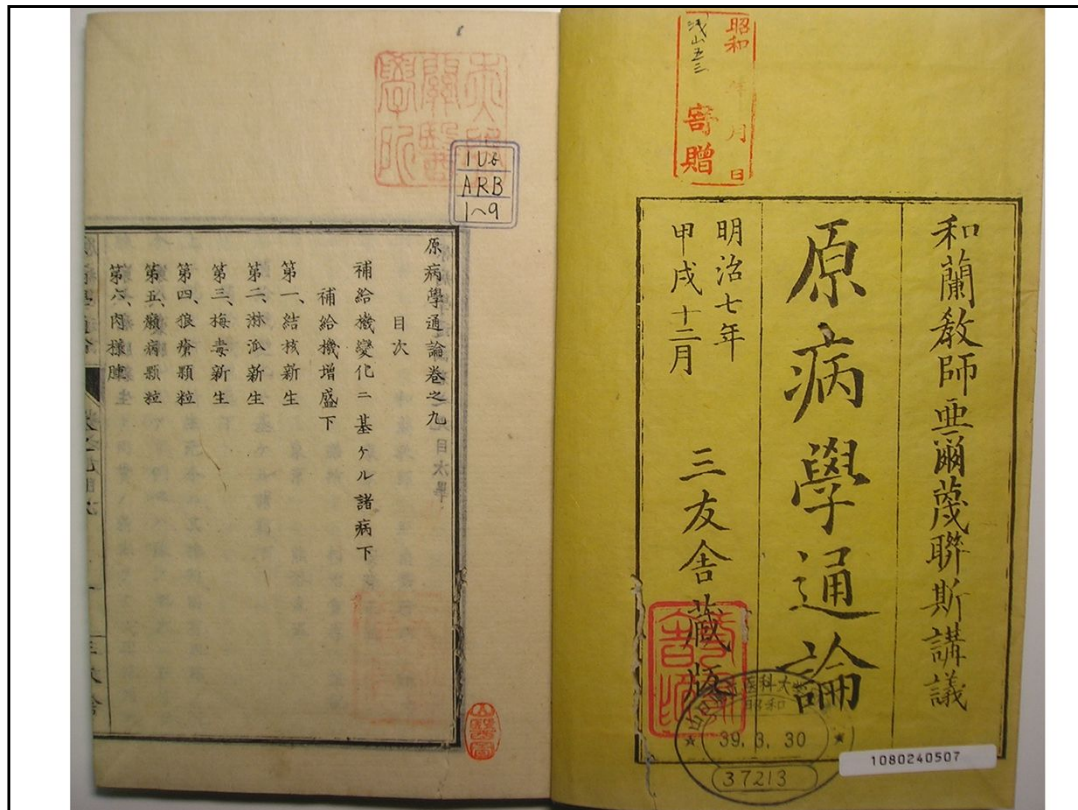 昭和 年 月 日
浅山五三
寄贈
和蘭教師亜爾蔑聯斯講議
原病學通論
明治七年
甲戌十二月
三友舎蔵版
昭和
39. 3. 30
37213
1080240507
106
ARB
1~9
原病學通論巻之九
目次
補給機變化ニ基ケル諸病下
補給機增盛下
第一、結核新生
第二、淋巴新生
第三、梅毒新生
第四、狼瘡顆粒
第五、癩病顆粒
第六、肉樣腫